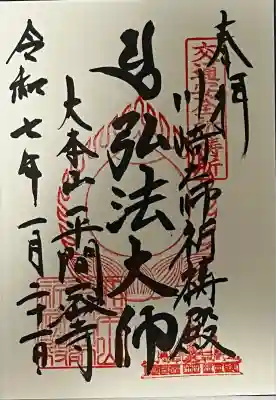 奉拝
交通安全祈祷所
川崎大師祈祷殿
弘法大師
大本山平間寺
令和七年一月二十一日